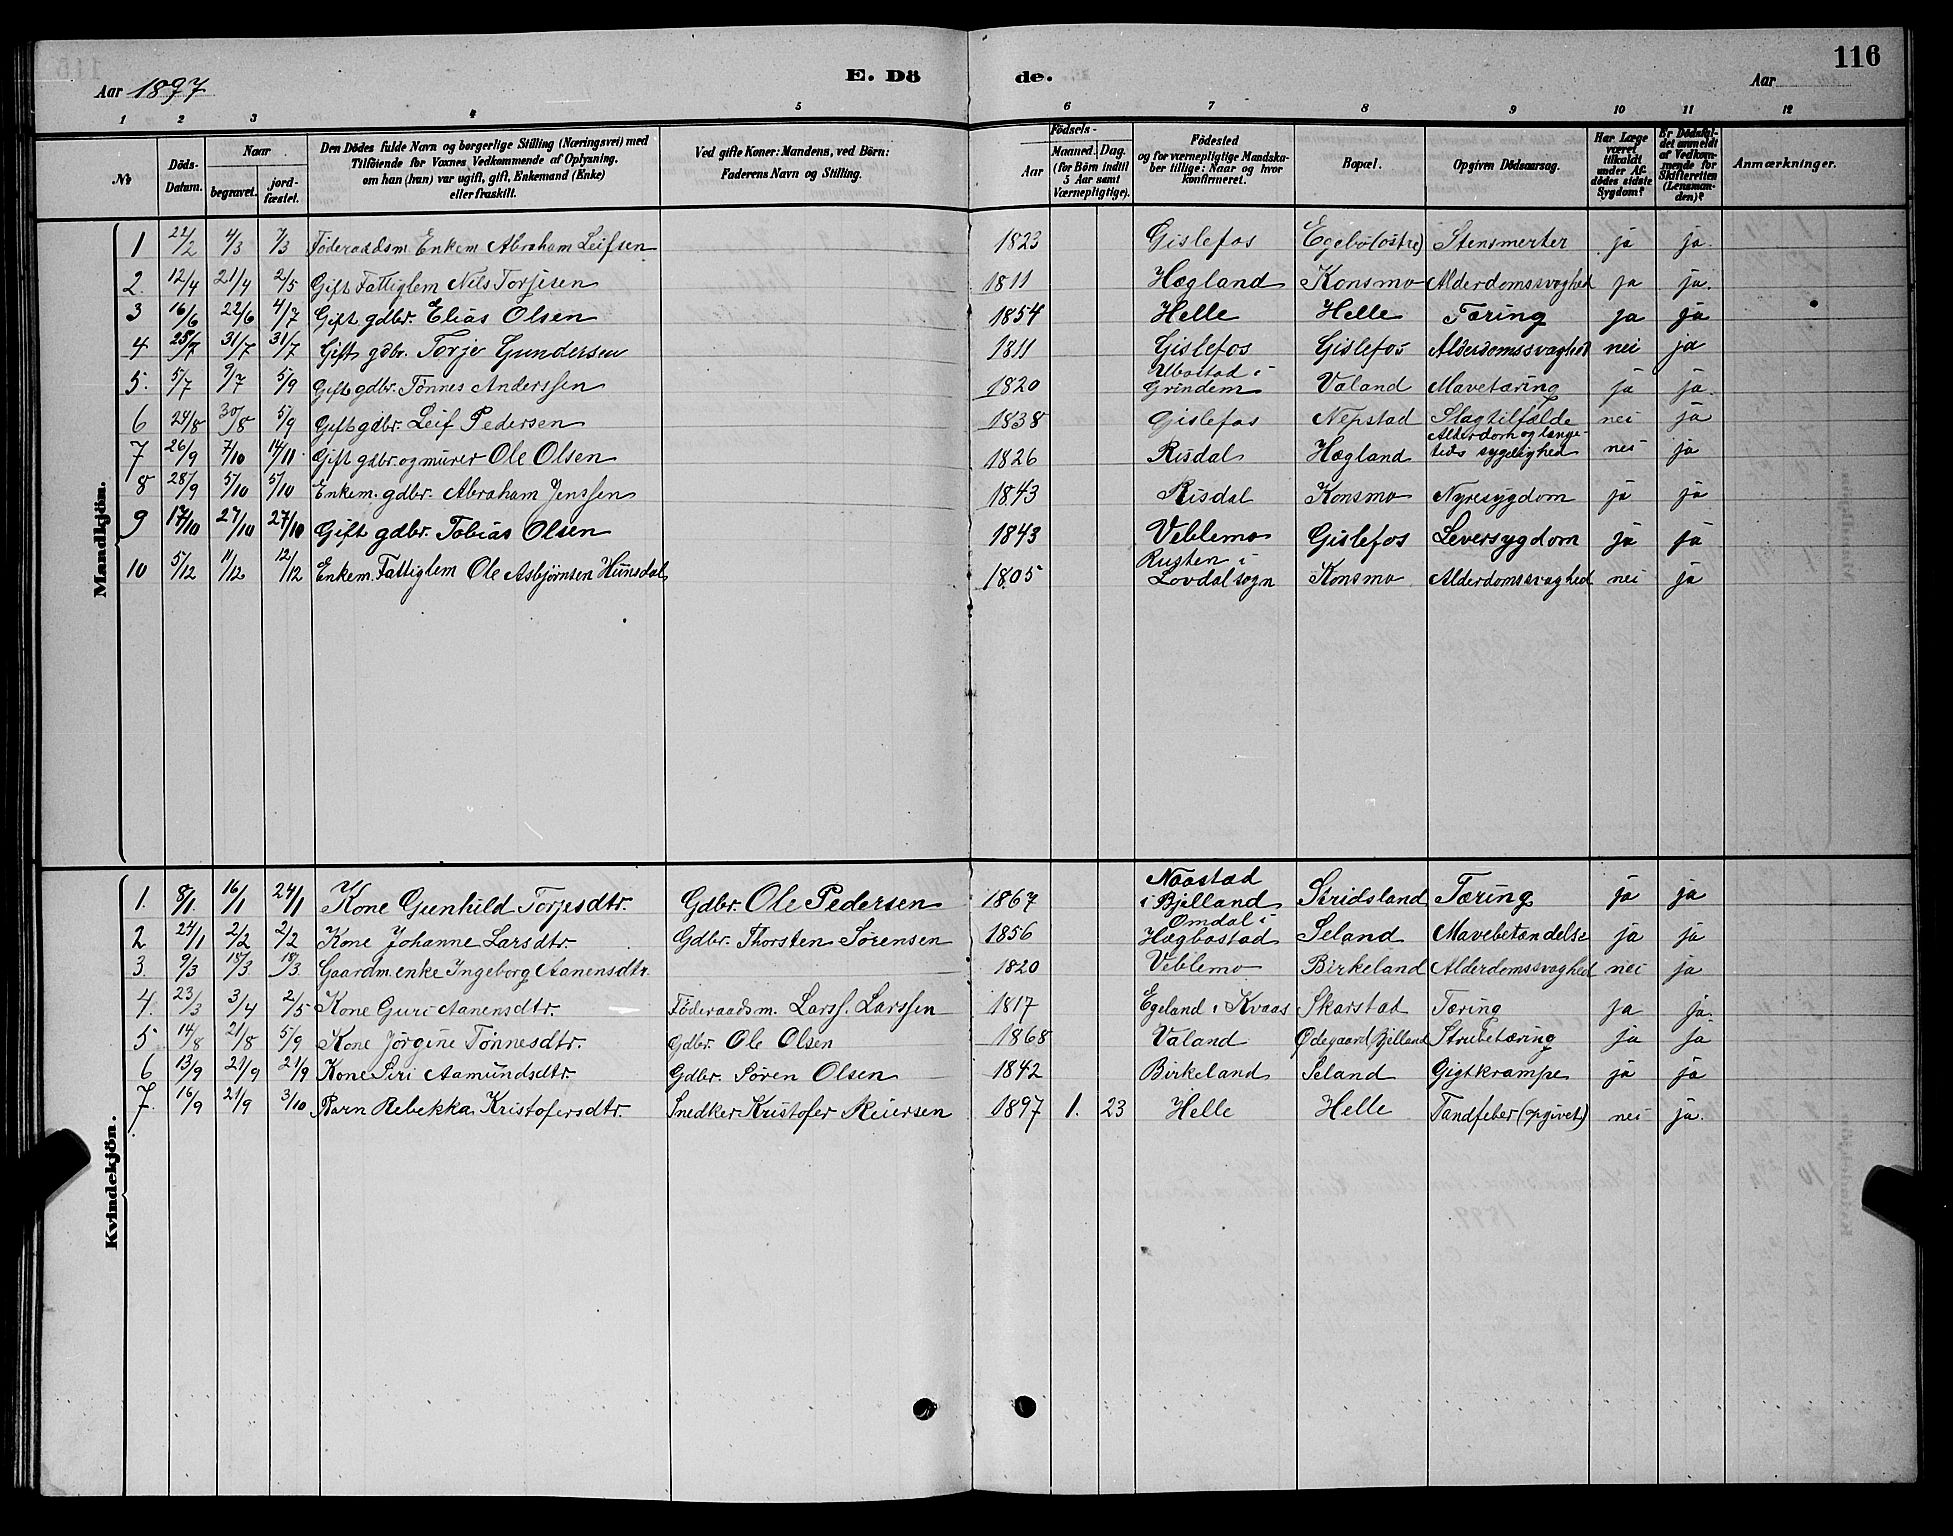 116
Aar 1897
E. Dö de.
Aar
1 2 3 4 5 6 7 8 9 10 11 12
No
Döds-Datum.
Naar
begravet.
jordfæstet.
Den Dödes fulde Navn og borgerlige Stilling (Næringsvei) med
Tilföiende for Voxnes Vedkommende af Oplysning,
om han (hun) var ugift, gift, Enkemand (Enke)
eller fraskilt.
Ved gifte Koner: Mandens, ved Börn:
Faderens Navn og Stilling.
Födsels-
Aar
Maaned. Dag.
(for Börn indtil
5 Aar samt
Værnepligtige).
Födested
og for værnepligtige Mandska-
ber tillige: Naar og hvor
konfirmeret.
Bopæl.
Opgiven Dödsaarsag.
Har Læge
været
tilkaldt
under Af-
dödes sidste
Sygdom?
Er Dödsfal-
det anmeldt
af Vedkom-
mende for
Skifteretten
(Lensman-
den)?
Anmærkninger.
Mandkjön.
1 22/2 4/3 7/3 Föderaadsm. Enkem Abraham Leifsen 1823 Gislefos Egebö(östre) Stensmerter ja ja.
2. 12/4 21/4 2/5 Gift Fattiglem Nils Torjesen 1811 Hægland Konsmo Alderdomssvaghed ja ja.
3 16/6 22/6 4/7 Gift gdbr. Elias Olsen 1854 Helle Helle Tæring ja ja
4 25/7 31/7 31/7 Gift gdbr. Torje Gundersen 1811 Gislefos Gislefos Alderdomssvaghed nei ja
5. 5/7 9/7 5/9 Gift gdbr. Tönnes Anderssen 1820 Ubostad i Grindem Valand Mavetæring ja ja.
6 24/8 30/8 5/9 Gift gdbr. Leif Pedersen 1838 Gislefos Nepstad Slagtilfælde nei ja
7 26/9 7/10 14/11. Gift gdbr. og murer Ole Olsen 1826 Risdal Hægland Alderdom og længe-tids sygelighed nei ja
8 28/9 5/10 5/10 Enkem. gdbr. Abraham Jenssen 1843 Risdal Konsmo Nyresygdom ja ja
9 17/10 27/10 27/10 Gift gdbr. Tobias Olsen 1843 Veblemo Gislefos Leversygdom ja ja
10 5/12 11/12 12/12 Enkem. Fattiglem Ole Asbjørnsen Hunsdal 1805 Rusten i Lovdal sogn Konsmo Alderdomssvaghed nei ja
Kvindekjön.
1. 8/1. 16/1 24/1 Kone Gunhild Torjesdtr. Gdbr. Ole Pedersen 1867 Naastad i Bjelland Stridsland Tæring ja ja
2 24/1 2/2 2/2 Kone Johanne Larsdtr. Gdbr. Thorsten Sörensen 1856 Omdal i Hægbostad Seland Mavebetændelse ja ja
3. 9/3 18/3 18/3 Gaardm. enke Ingeborg Aanensdtr. 1820 Veblemo Birkeland Alderdomssvaghed nei ja
4. 23/3 3/4 2/5 Kone Guri Aanensdtr. Föderaadsm. Larss. Larssen 1817 Egeland i Kvaas Skarstad Tæring ja ja.
5. 14/8 21/8 5/9 Kone Jörgine Tönnesdtr. Gdbr. Ole Olsen 1868 Valand Ødegaard Bjelland Strubetæring ja ja
6 13/9 21/9 21/9 Kone Siri Aamundsdtr. Gdbr. Sören Olsen 1842 Birkeland Seland Gigtkrampe ja ja
7. 16/9 21/9 3/10 Barn Rebekka Kristofersdtr. Snedker Kristofer Reiersen 1897 1. 23 Helle Helle Tandfeber (opgivet) nei ja.